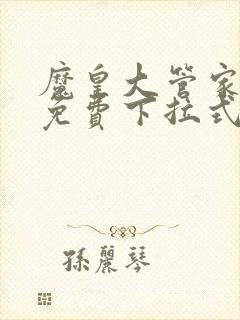 魔皇大管家
免費下拉式
孫麗琴